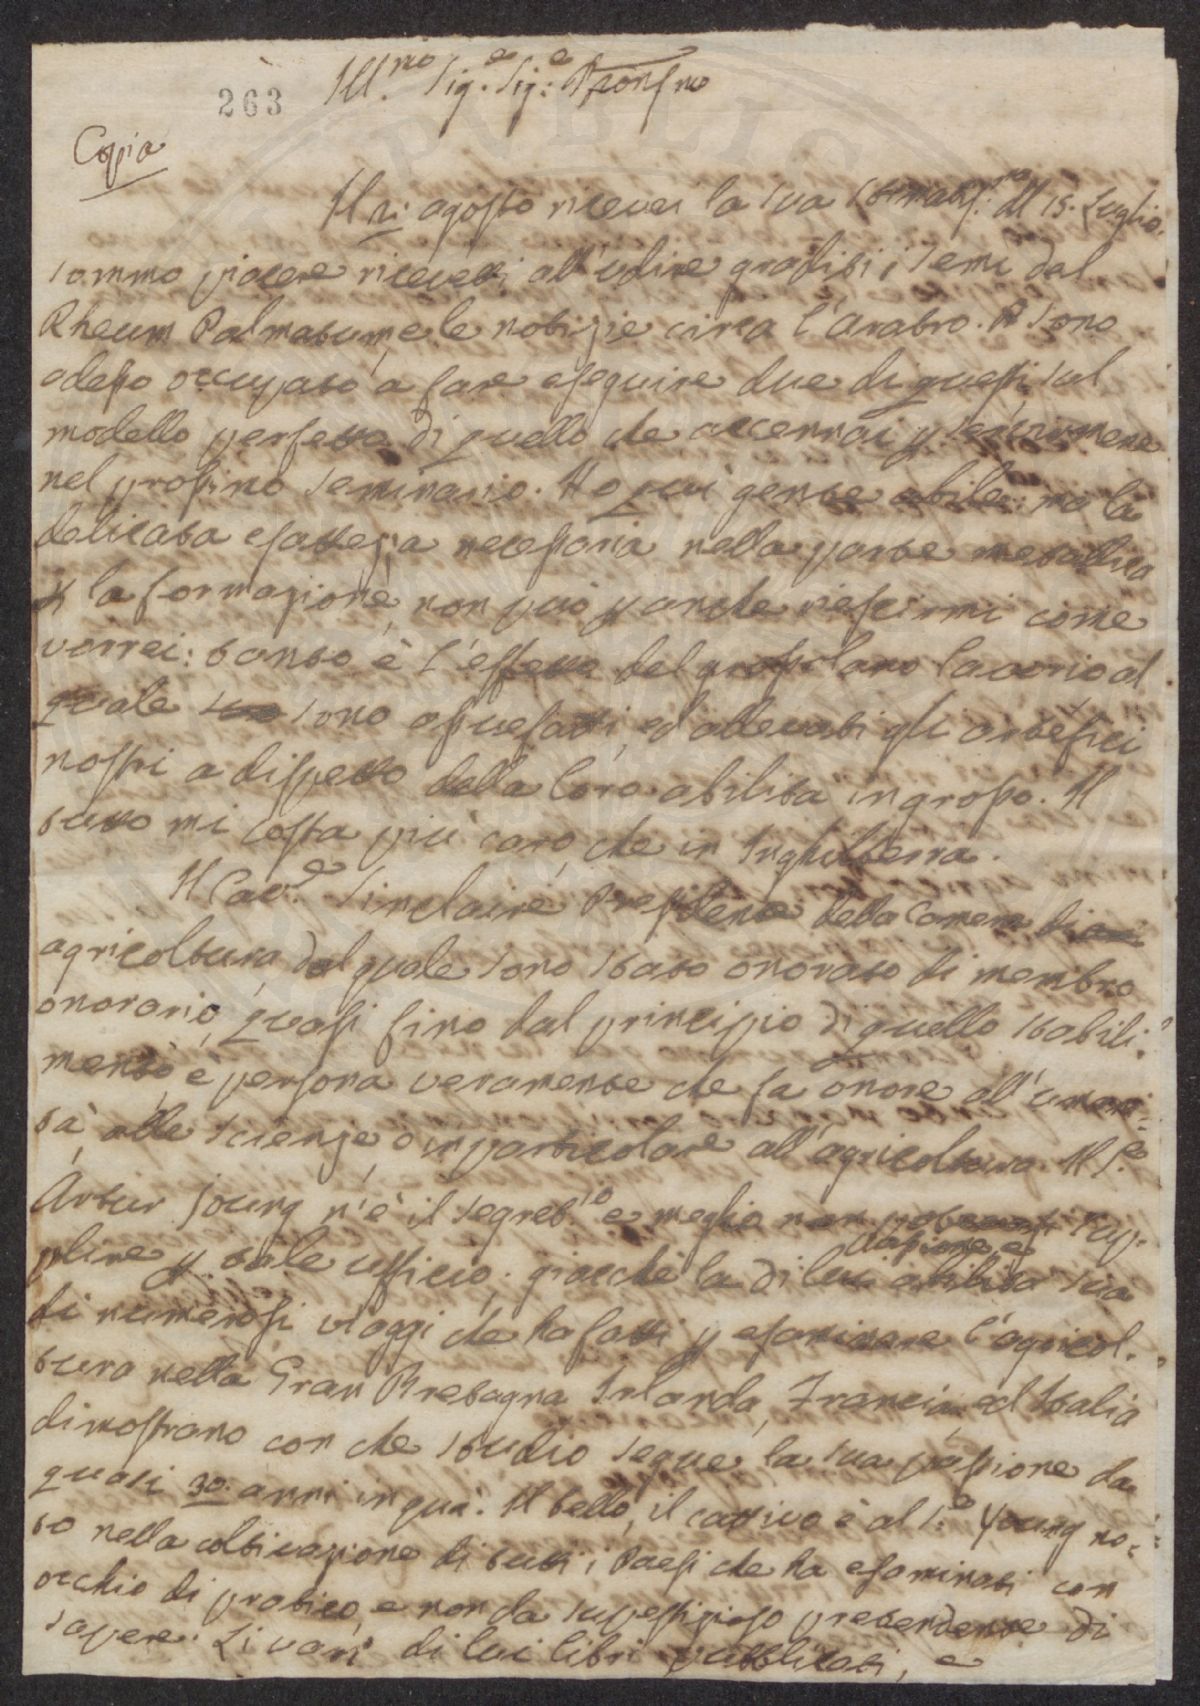 263
Ill.mo Sig.e Sig.e Pron
Copia
Il 2: agosto ricevei la sua del 15. Luglio.
sommo piacere ricevetti all'udire graditi i semi dal
Rheum Palmatum, e le notizie circa l'aratro. Sono
adesso occupato a fare eseguire due di questi sul
modello perfetto di quello che accennai p servirmene
nel prossimo seminario. Ho qui gente abile: ma la
delicata esattezza necessaria nella parte metallica
p la formazione, non può p anche riescirmi come
vorrei: tanto è l'effetto del grossolano lavorio al
quale sono assuefatti, ed allevati gli artefici
nostri a dispetto della loro abilità in grosso. Il
tutto mi costa più caro, che in Inghilterra.
Il Cav.e Sinclaire Presidente della Camera di
agricoltura, dal quale sono stato onorato di membro
onorario, quasi fino dal principio di quello stabili:
mento, è persona veramente che fa onore all'umani:
tà, alle scienze, e in particolare all'agricoltura. Il S.e
Artur Joung n'è il segret.io e meglio non sup:
plire p tale uffizio; giacchè la di lui passione, e abilità sua
di numerosi viaggi che ha fatti p esaminare l'agricol:
tura nella Gran Bretagna, Irlanda, Francia, ed Italia
dimostrano con che studio segue la sua passione da
quasi 30. anni in qua. Il bello, il cattivo è al S.e Young no:
to nella coltivazione di tutti i Paesi che ha esaminati con
occhio di pratico, e non da pretendente di
sapere. Li varj di lui libri pubblicati, e